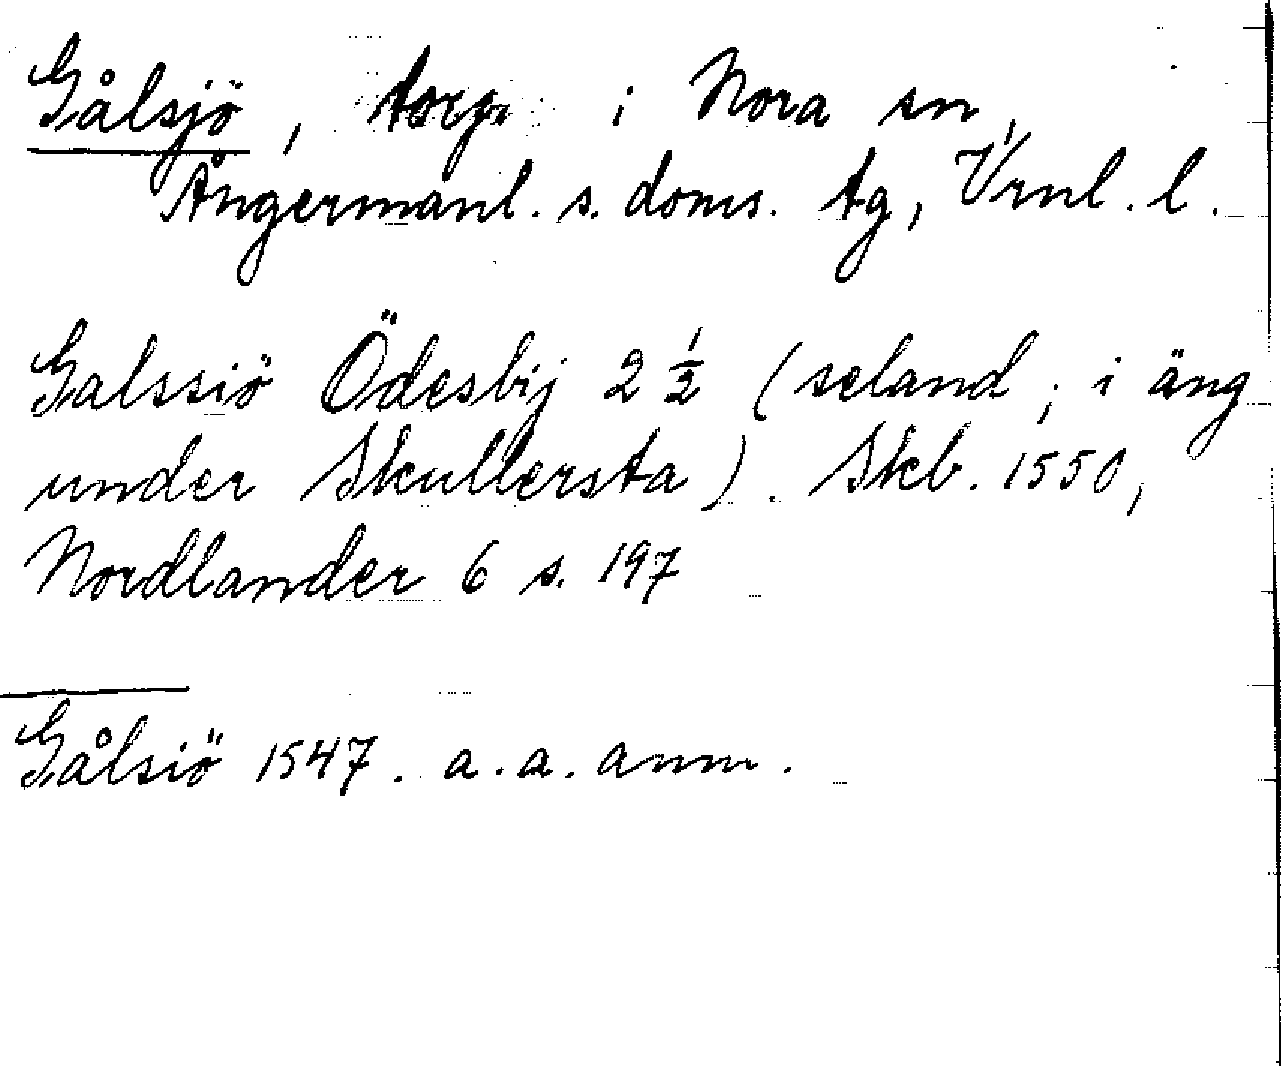 Gålsjö, torp i Nora sn,
Ångermanl. s. doms. tg, Vrnl. l.
Galssiö Ödesbij 2 ½ (seland; i äng
under Skullersta). Skb. 1550,
Nordlander 6 s. 197
Gålsiö 1547. a. a. anm.